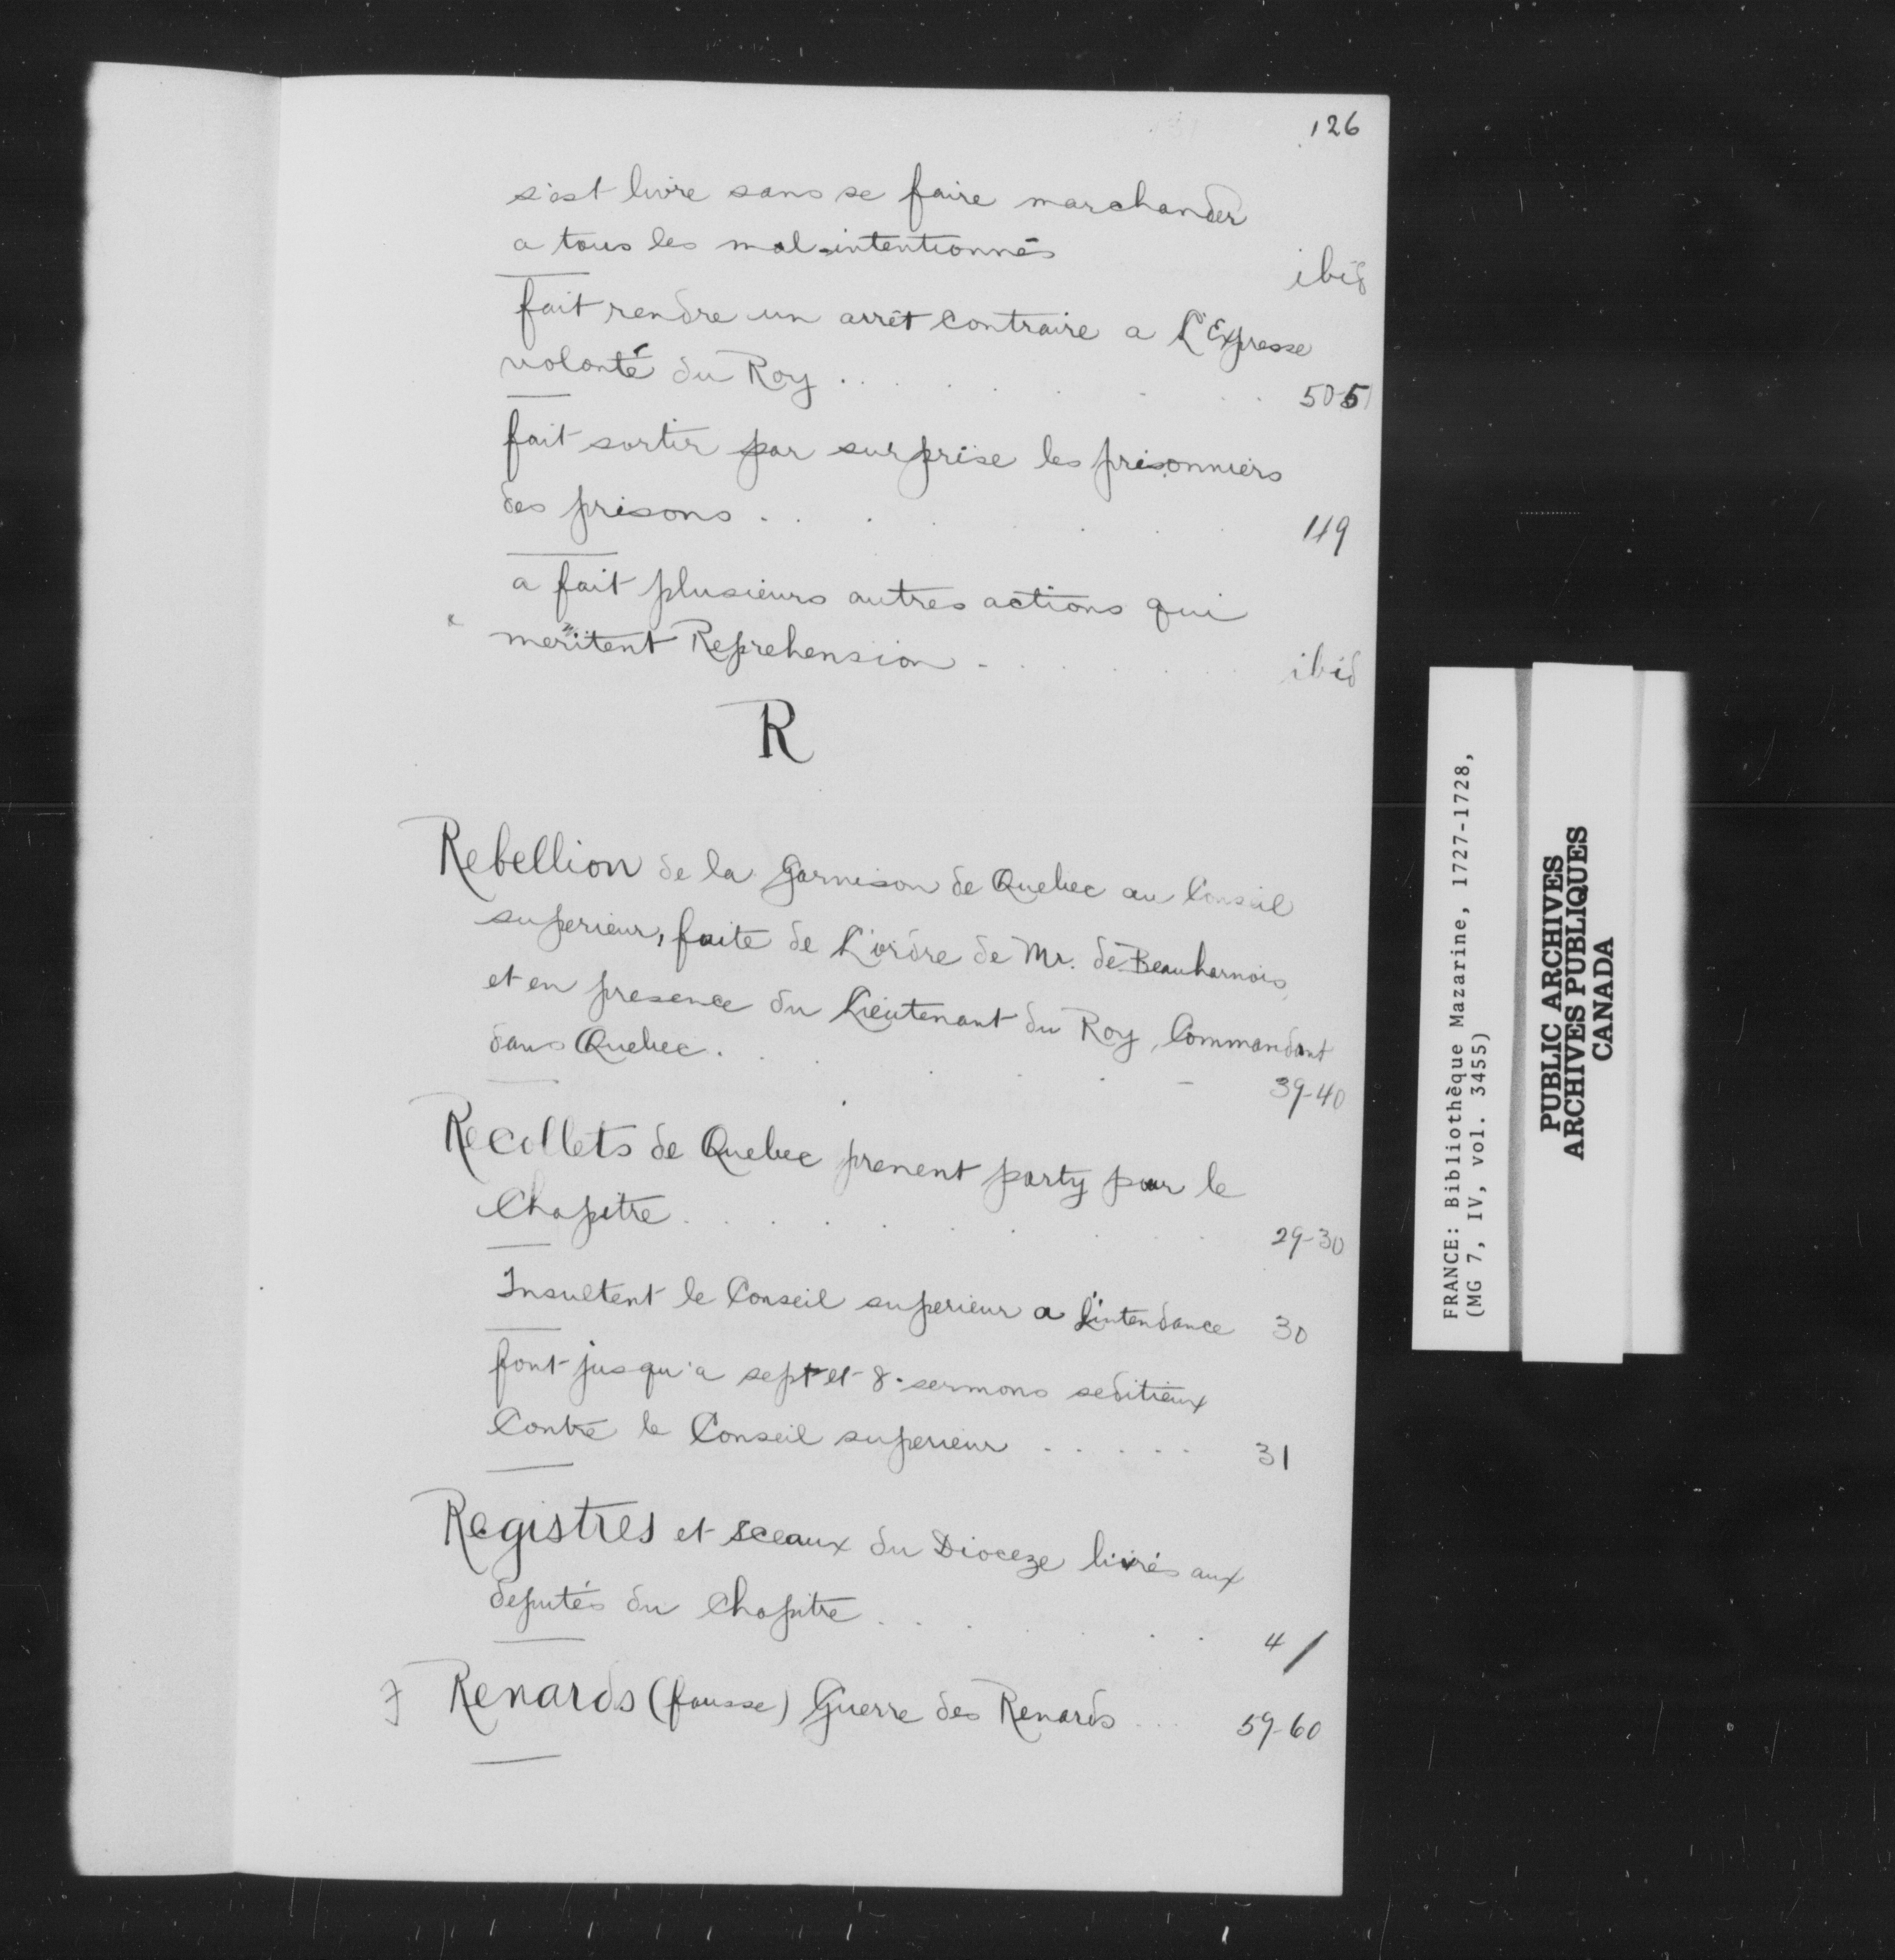 126
s'est livre sans se faire marchander
a tous les mal-intentionnés
ibid
fait rendre un arrêt contraire a L'Expresse
volonté du Roy . . . . . . 50-51
fait sortir par surprise les prisonniers
des prisons . . . . . . 119
a fait plusieurs autres actions qui
meritent Reprehension . . . . . ibid
R
Rebellion de la garnison de Quebec au Conseil
superieur, faite de L'ordre de Mr. de Beauharnois,
et en presence du Lieutenant du Roy, Commandant
dans Quebec . . . . . 39-40
Recollets de Quebec prenent party pour le
Chapitre . . . . . . . 29-30
Insultent le Conseil superieur a L'intendance 30
font jusqu'a sept et 8. sermons seditieux
Contre le Conseil superieur . . . . . 31
Registres et sceaux du Dioceze livrés aux
deputés du Chapitre . . . . . 4
Renards (fausse) Guerre des Renards . . . 59-60
FRANCE: Bibliothèque Mazarine, 1727-1728,
(MG 7, IV, vol. 3455)
PUBLIC ARCHIVES
ARCHIVES PUBLIQUES
CANADA